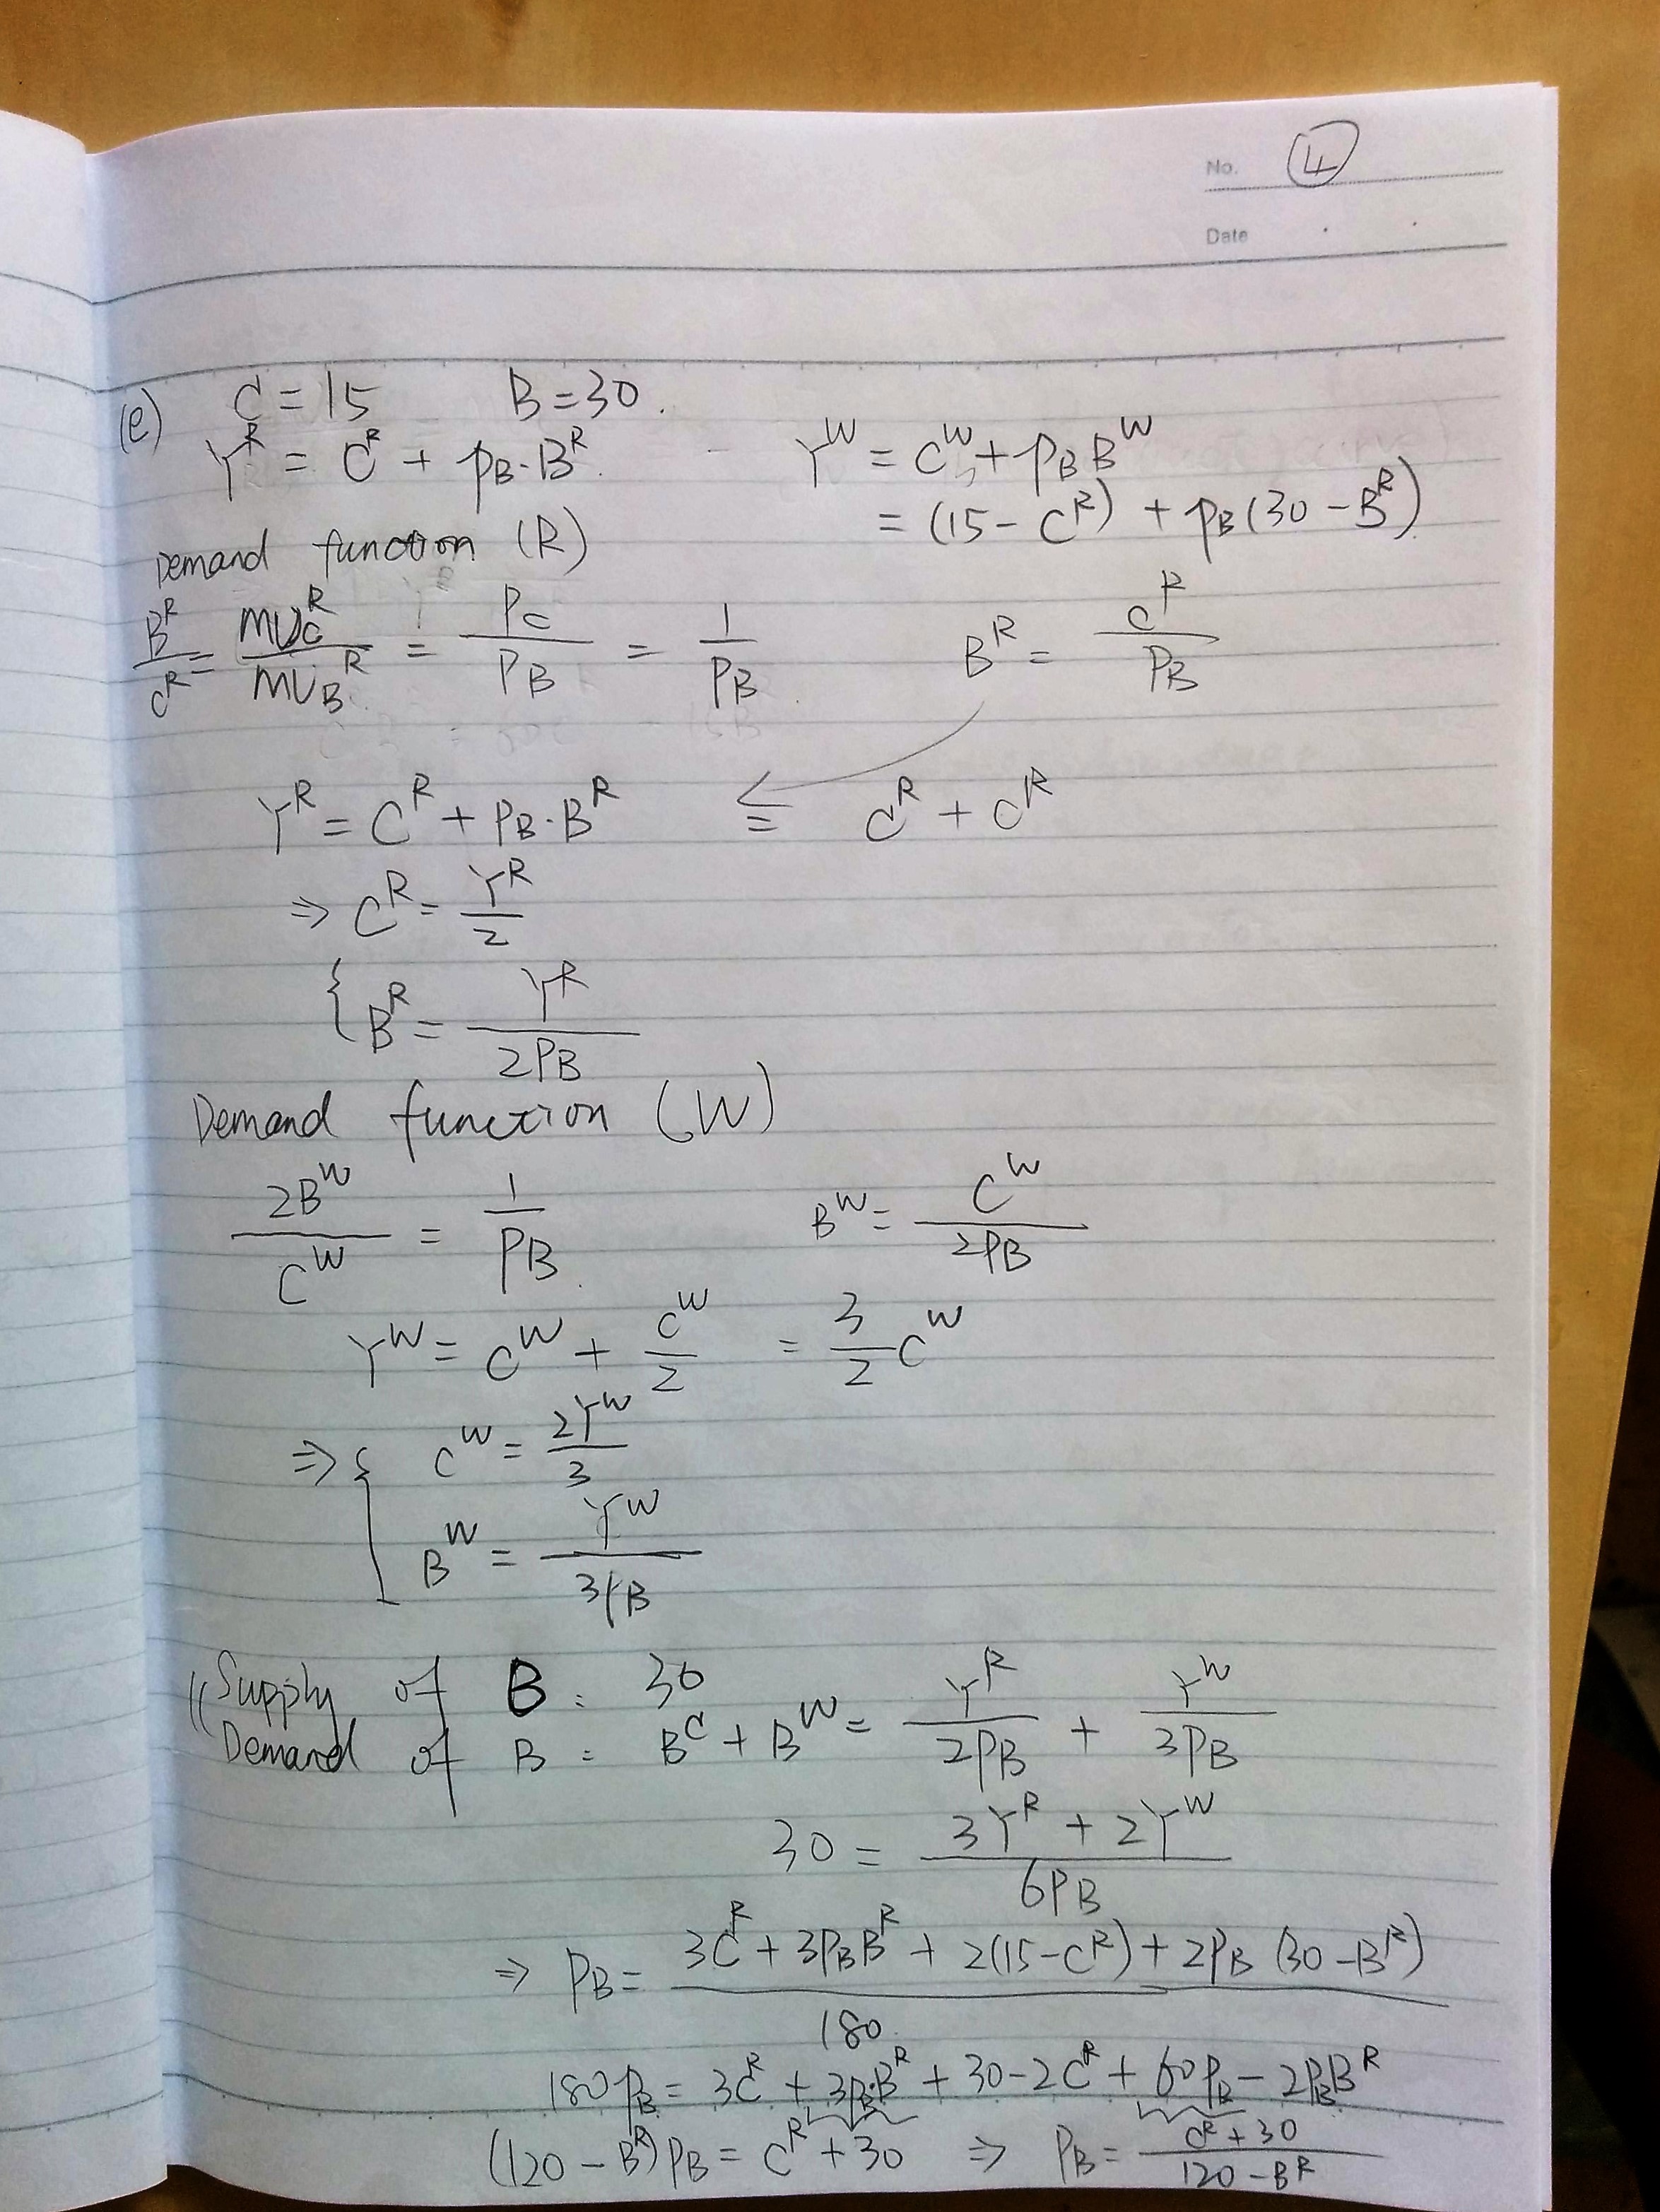 No. ④
Date
(e) C = 15 B = 30.
Y^R = C^R + P_B · B^R. Y^W = C^W + P_B B^W
= (15 - C^R) + P_B (30 - B^R)
Demand function (R)
B^R/C^R = MU_C^R/MU_B^R = P_C/P_B = 1/P_B B^R = C^R/P_B
Y^R = C^R + P_B · B^R = C^R + C^R
⇒ C^R = Y^R/2
{ B^R = Y^R/2P_B
Demand function (W)
2B^W/C^W = 1/P_B. B^W = C^W/2P_B
Y^W = C^W + C^W/2 = 3/2 C^W
⇒ { C^W = 2Y^W/3
B^W = Y^W/3P_B
Supply of B : 30
Demand of B : B^C + B^W = Y^R/2P_B + Y^W/3P_B
30 = (3Y^R + 2Y^W)/6P_B
⇒ P_B = (3C^R + 3P_B B^R + 2(15 - C^R) + 2P_B (30 - B^R))/180
180 P_B = 3C^R + 3P_B·B^R + 30 - 2C^R + 60P_B - 2P_B B^R
(120 - B^R) P_B = C^R + 30 ⇒ P_B = (C^R + 30)/(120 - B^R)